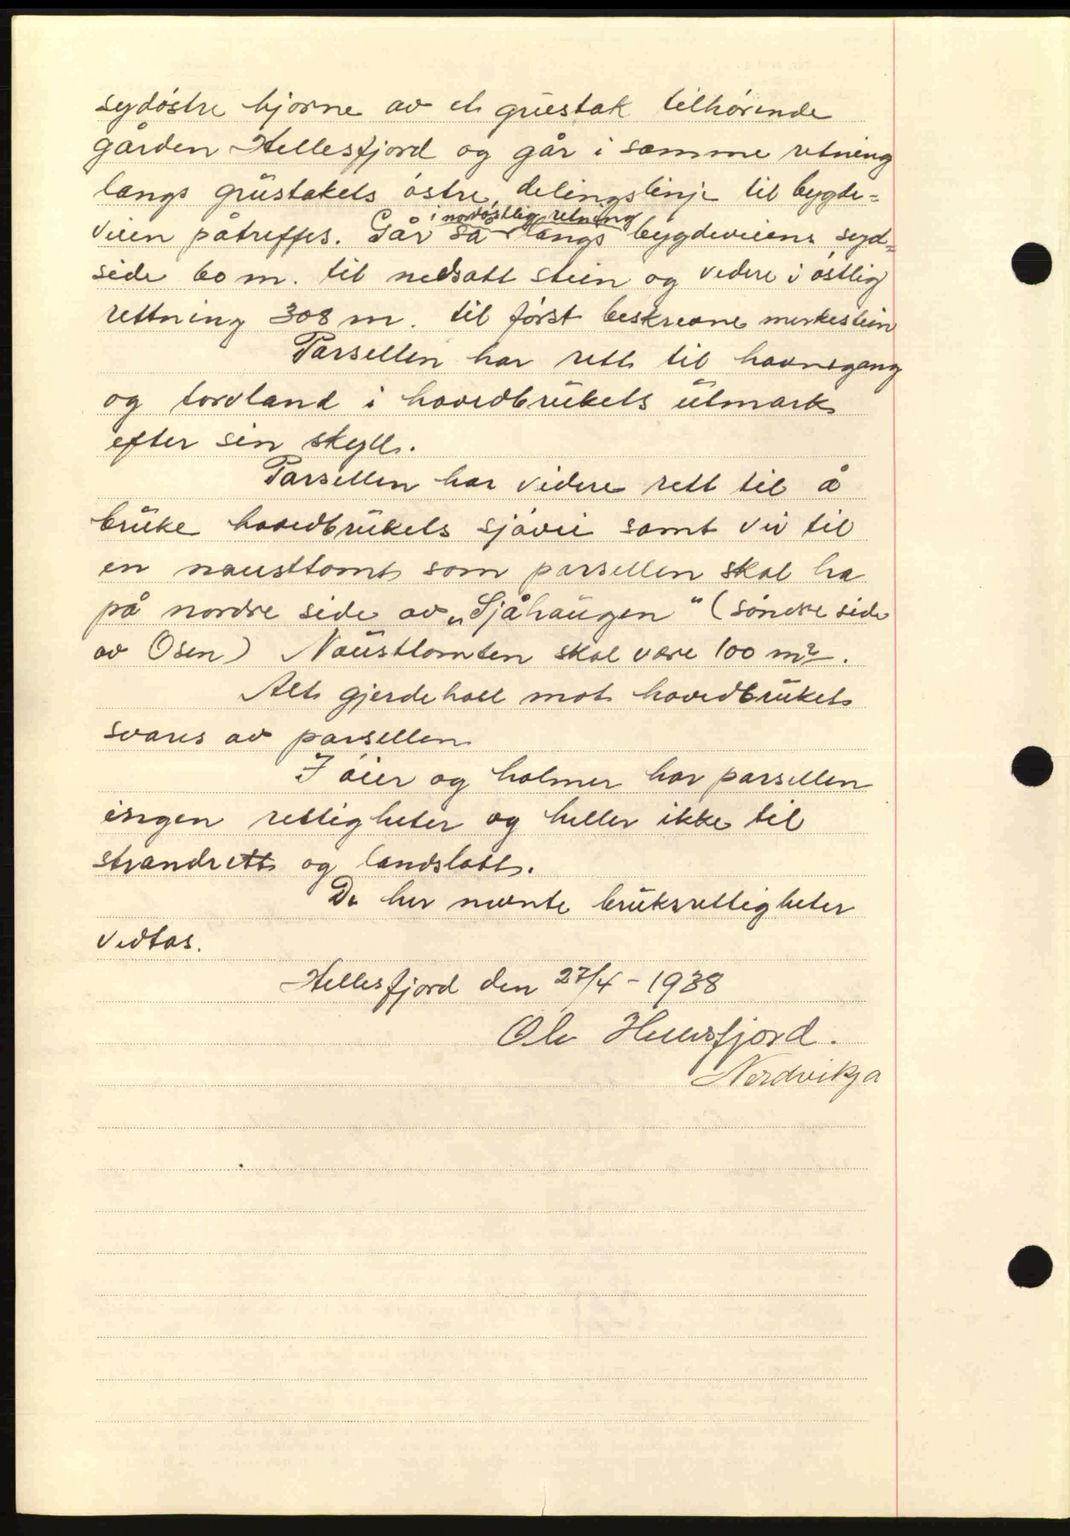 sydøstre hjørne av et grustak tilhørende
gården Hellesfjord og går i samme retning
langs grustakets østre delingslinje til bygde=
veien påtreffes. Går så i nordøstlig retning langs bygdeveiens syd=
side 60 m. til nedsatt stein og videre i østlig
rettning 308 m. til først beskrevne merkestein
Parsellen har rett til havnegang
og torvland i hovedbrukets utmark
efter sin skyll.
Parsellen har videre rett til å
bruke hovedbrukets sjøvei samt vei til
en nausttomt som parsellen skal ha
på nordre side av „Sjåhaugen" (søndre side
av Osen) Nausttomten skal være 100 m².
Alt gjerdehall mot hovedbruket
svares av parsellen
I øier og holmer har parsellen
ingen rettigheter og heller ikke til
strandrett og landslott.
De her nevnte bruksrettigheter
vedtas.
Hellesfjord den 27/4 - 1938
Ole Hellesfjord.
Nordvikja